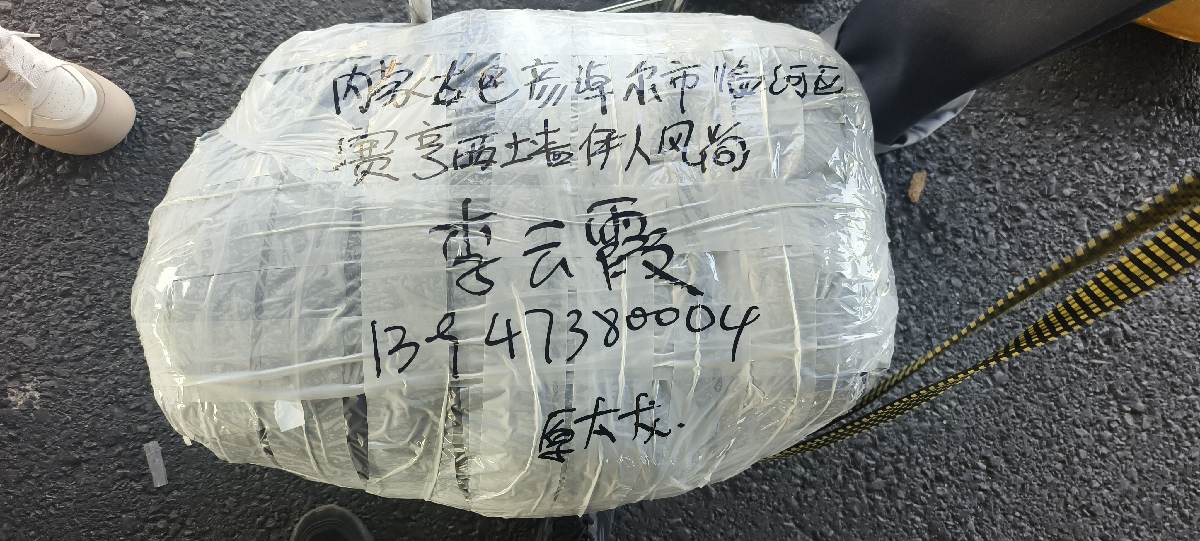 内蒙古巴彦淖尔市临河区
赛亨西土墙伊人风尚
李云霞
13947380004
原大龙.